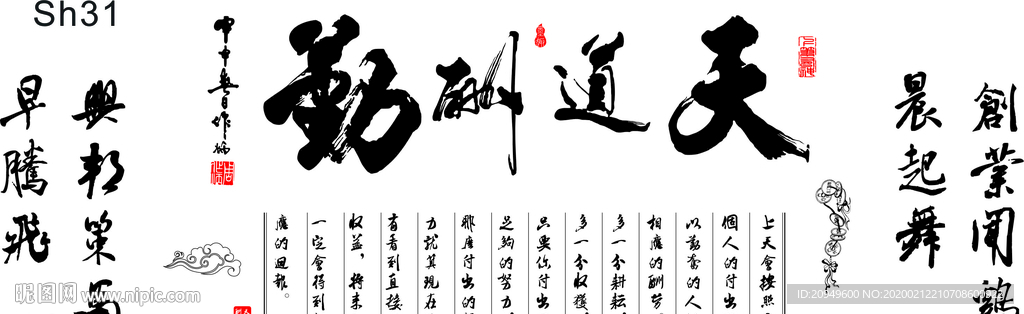 Sh31
天道酬勤
創業聞鷄
晨起舞
興邦策馬
早騰飛
上天會按照
個人的付出
以勤奮的人
相應的酬勞
多一分耕耘
多一分收獲
只要你付出
足夠的努力
將來
力就算現在
有看到直接
收益，將来
一定會得到
應的回報。
昵图网 www.nipic.com
ID:20949600 NO:20200212210708609